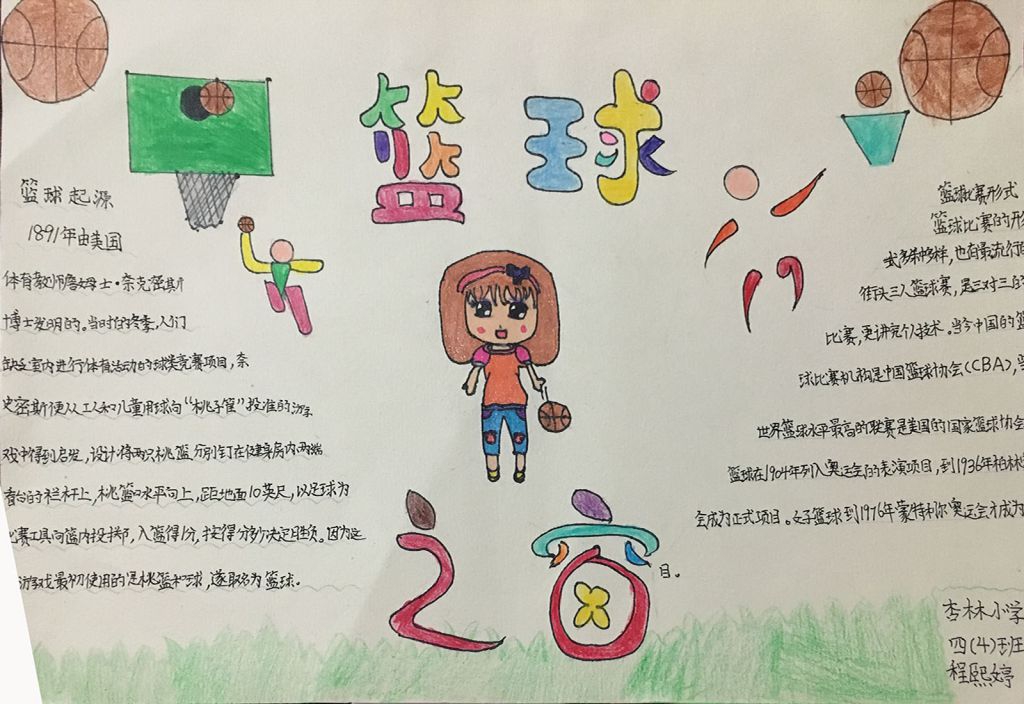 篮球
之窗
篮球起源
1891年由美国
体育教师詹姆士·奈克密斯
博士发明的。当时的冬季,人们
缺乏室内进行体育活动的球类竞赛项目,奈
史密斯便从工人和儿童用球向“桃子筐”投准的游
戏中得到启发,设计将两只桃篮分别钉在健身房内两端
看台的栏杆上,桃篮口水平向上,距地面10英尺,以足球为
比赛工具向篮内投掷,入篮得1分,按得分多少决定胜负。因为这
游戏最初使用的是桃篮和球,遂取名为篮球。
篮球比赛形式
篮球比赛的形
式多种多样,也有最流行的
街头三人篮球赛,是三对三的
比赛,更讲究个人技术。当今中国的篮
球比赛机构是中国篮球协会(CBA),当
世界篮球水平最高的联赛是美国的国家篮球协会
篮球在1904年列入奥运会的表演项目,到1936年柏林
会成为正式项目。女子篮球到1976年蒙特利尔奥运会才成为
目。
杏林小学
四(4)班
程熙婷